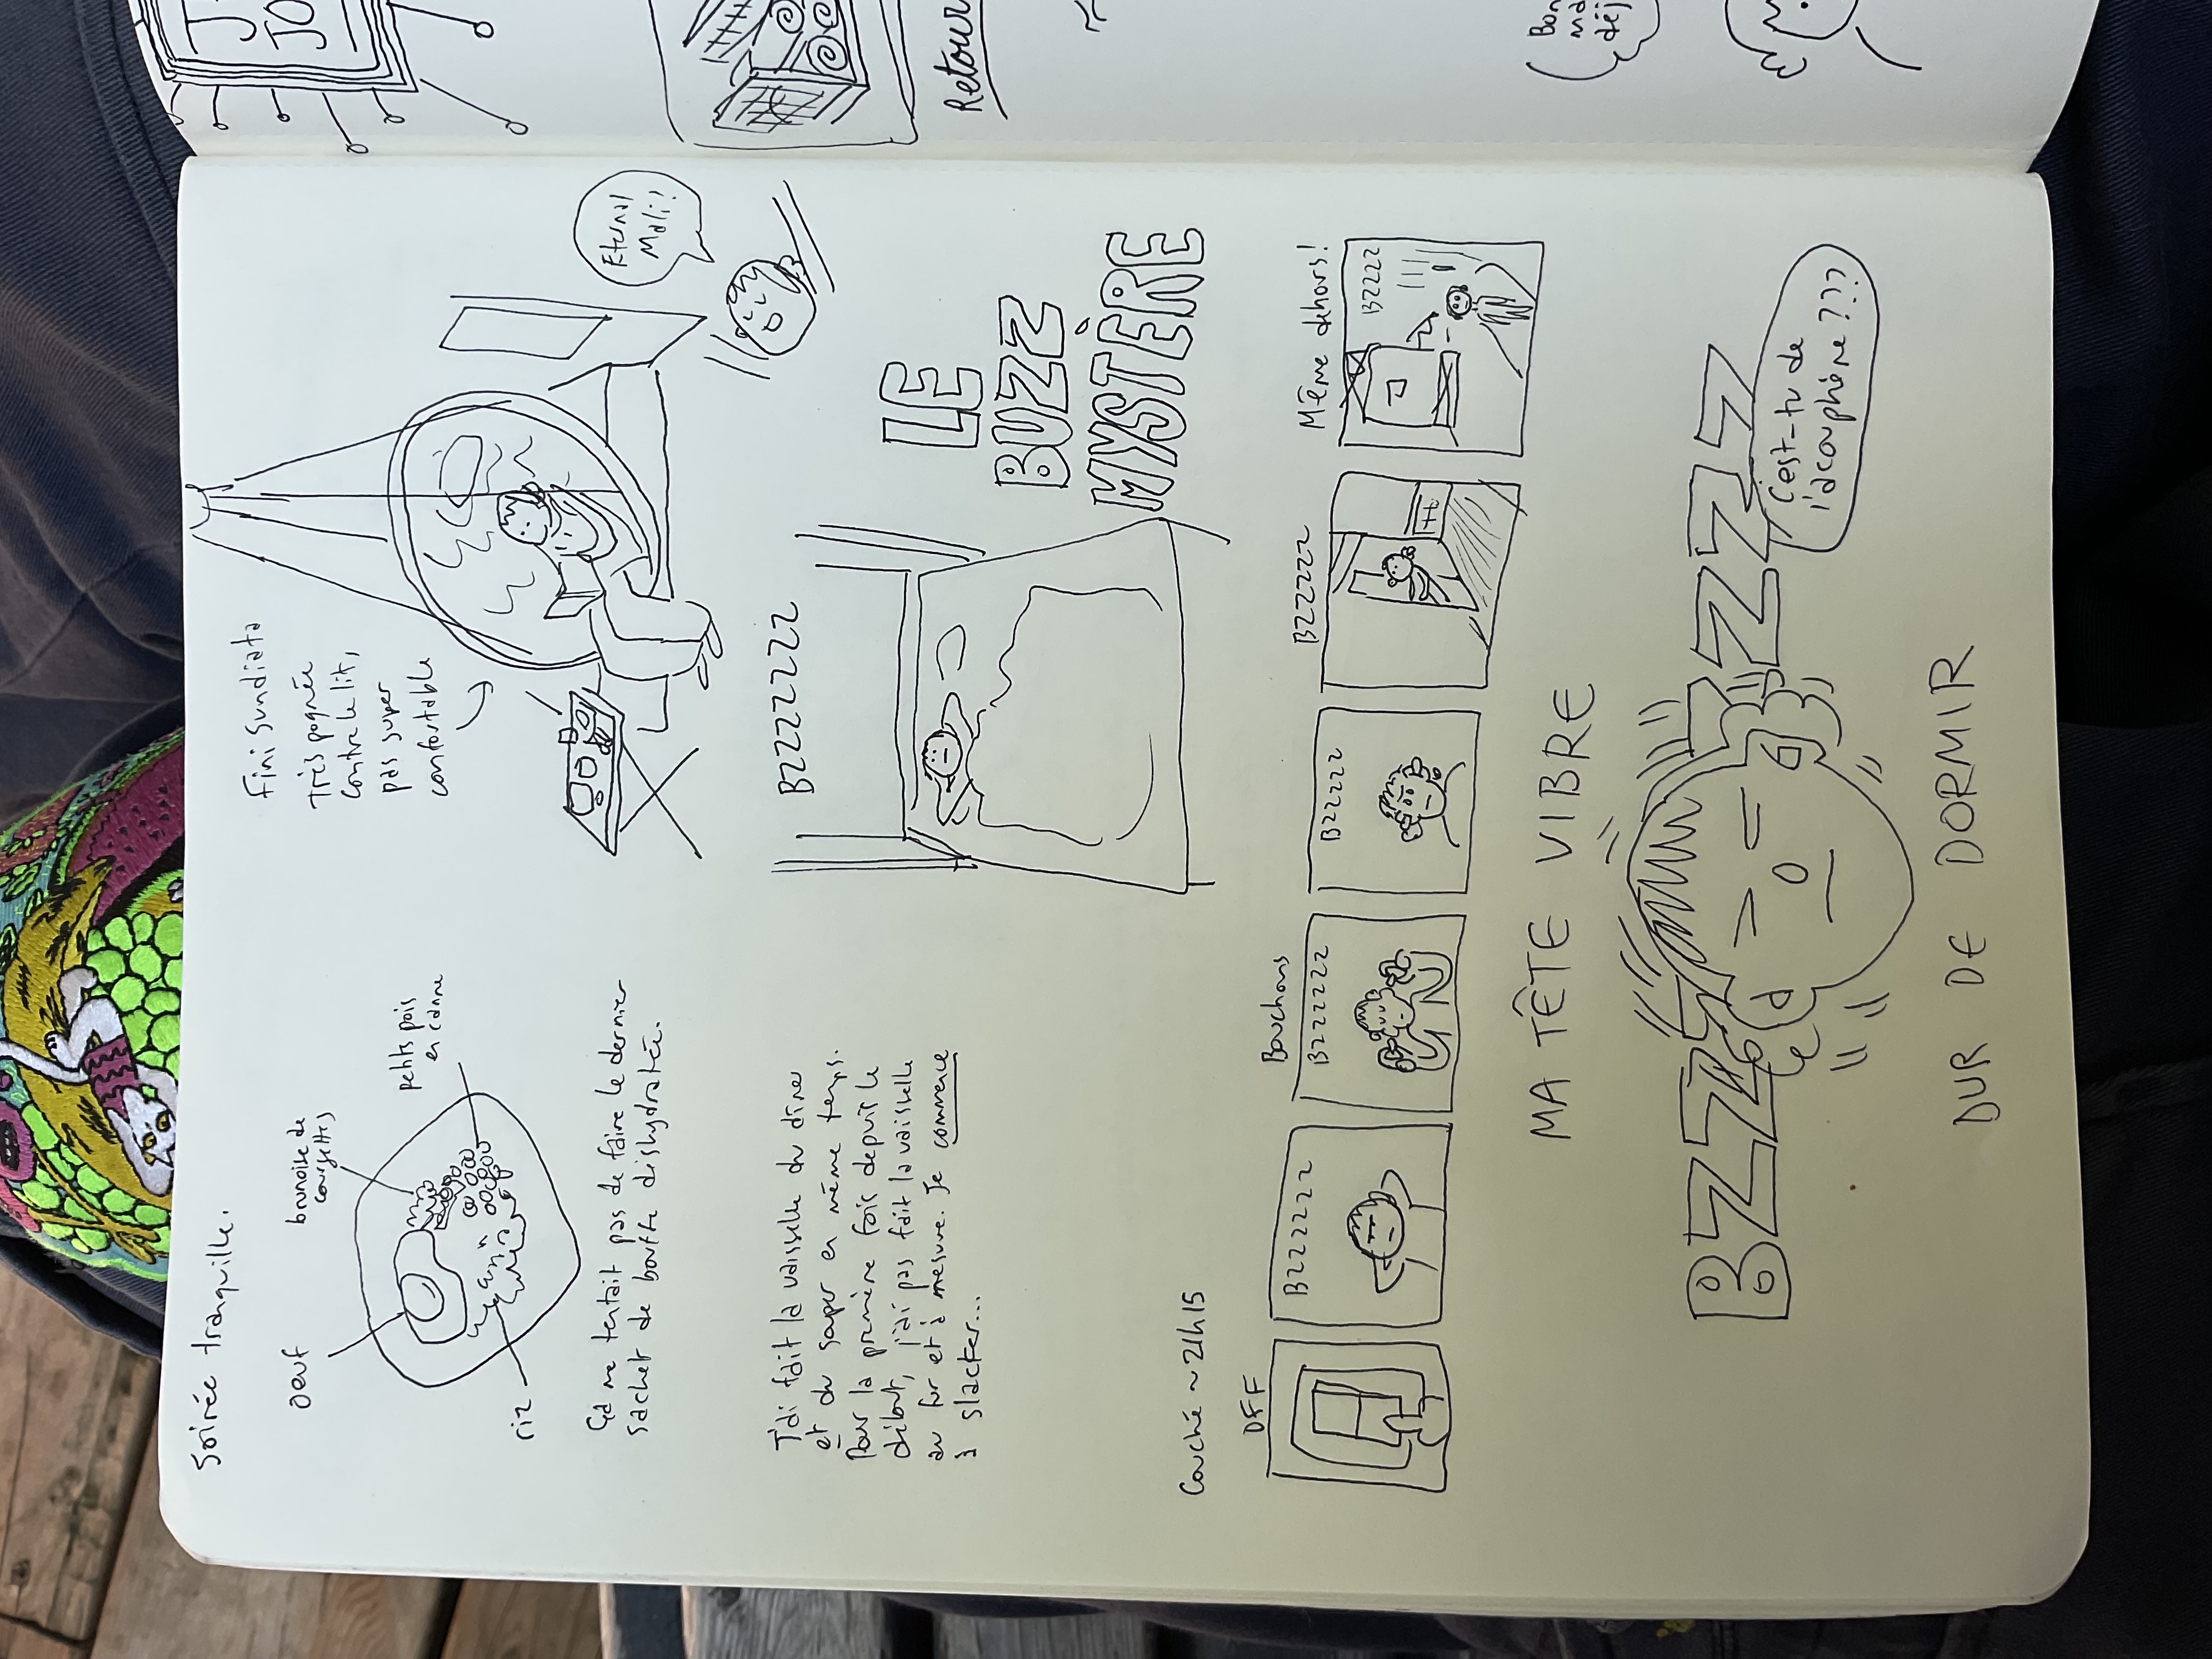 Soirée tranquille.
oeuf
brunoise de
courgettes
petits pois
en canne
riz
Fini Sundiata
Très pognée
contre le lit,
pas super
confortable
Eternal
Mali!
Ça me tentait pas de faire le dernier
sachet de bouffe dishydratée.
J'ai fait la vaisselle du diner
et du souper en même temps.
Pour la première fois depuis le
début, j'ai pas fait la vaisselle
au fur et à mesure. Je commence
à slacker...
BZZZZZZ
LE
BUZZ
MYSTÈRE
Couché ~ 21h15
OFF
BZZZZZZ
Bouchons
BZZZZZZ
BZZZZZ
BZZZZZ
Même dehors!
BZZZZ
MA TÊTE VIBRE
BZZZ ZZZZ
C'est-tu de
l'acouphène???
DUR DE DORMIR
J
JO
Retour
Bon
ma
déj